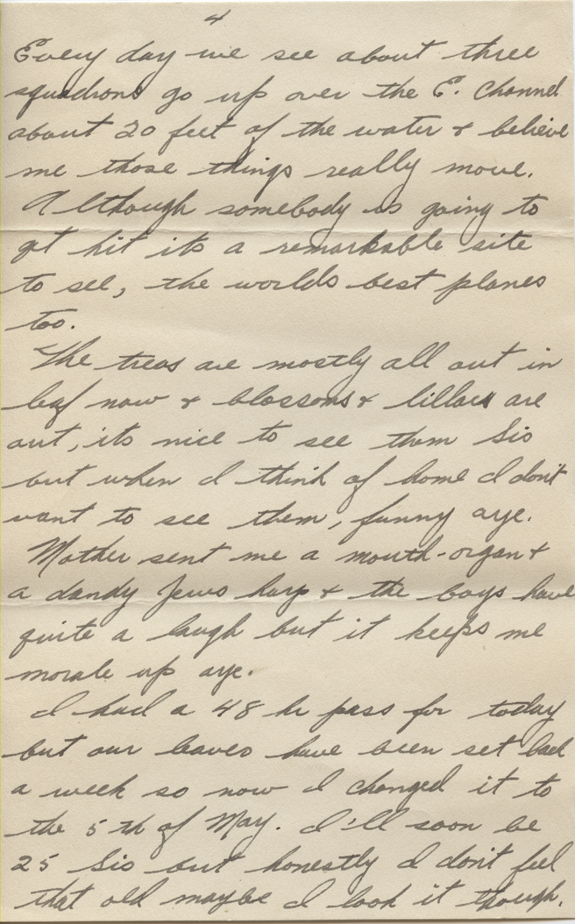 4
Every day we see about three
squadrons go up over the E. Channel
about 20 feet of the water & believe
me those things really move.
Although somebody is going to
get hit its a remarkable site
to see, the worlds best planes
too.
The trees are mostly all out in
leaf now & blossoms & lillacs are
out, its nice to see them Sis
but when I think of home I don't
want to see them, funny aye.
Mother sent me a mouth-organ &
a dandy Jews harp & the boys have
quite a laugh but it keeps me
morale up aye.
I had a 48 hr pass for today
but our leaves have been set back
a week so now I changed it to
the 5th of May. I'll soon be
25 Sis but honestly I don't feel
that old maybe I look it though.